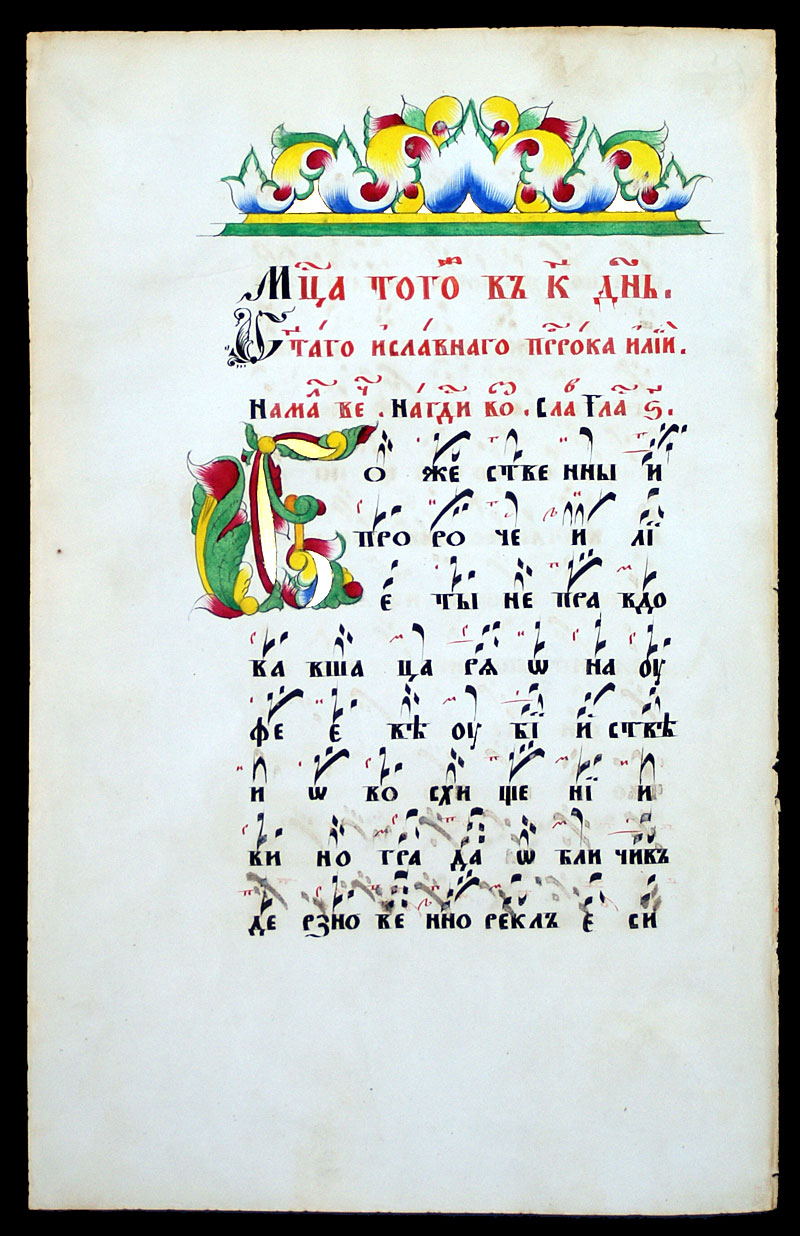 Мц҃а того́ въ к҃ дн҃ь.
Ст҃а́го и҆сла́внаго прⷪ҇ро́ка илїи̂.
Намаⷧ҇ веⷱ҇. На́гдⷭ҇и воⷥ. Сла Гла ѕ҃.
Бо же́ стве нны и҆
про ро че и лї
е ты не пра вдо
ва вша ца рѧ ѿ на оу
фе е вѣ оу бї и҆ ствѣ
и ѡ во схи ще нї и
ви но гра да ѡ бли чивъ
де рзно ве нно реклъ е си